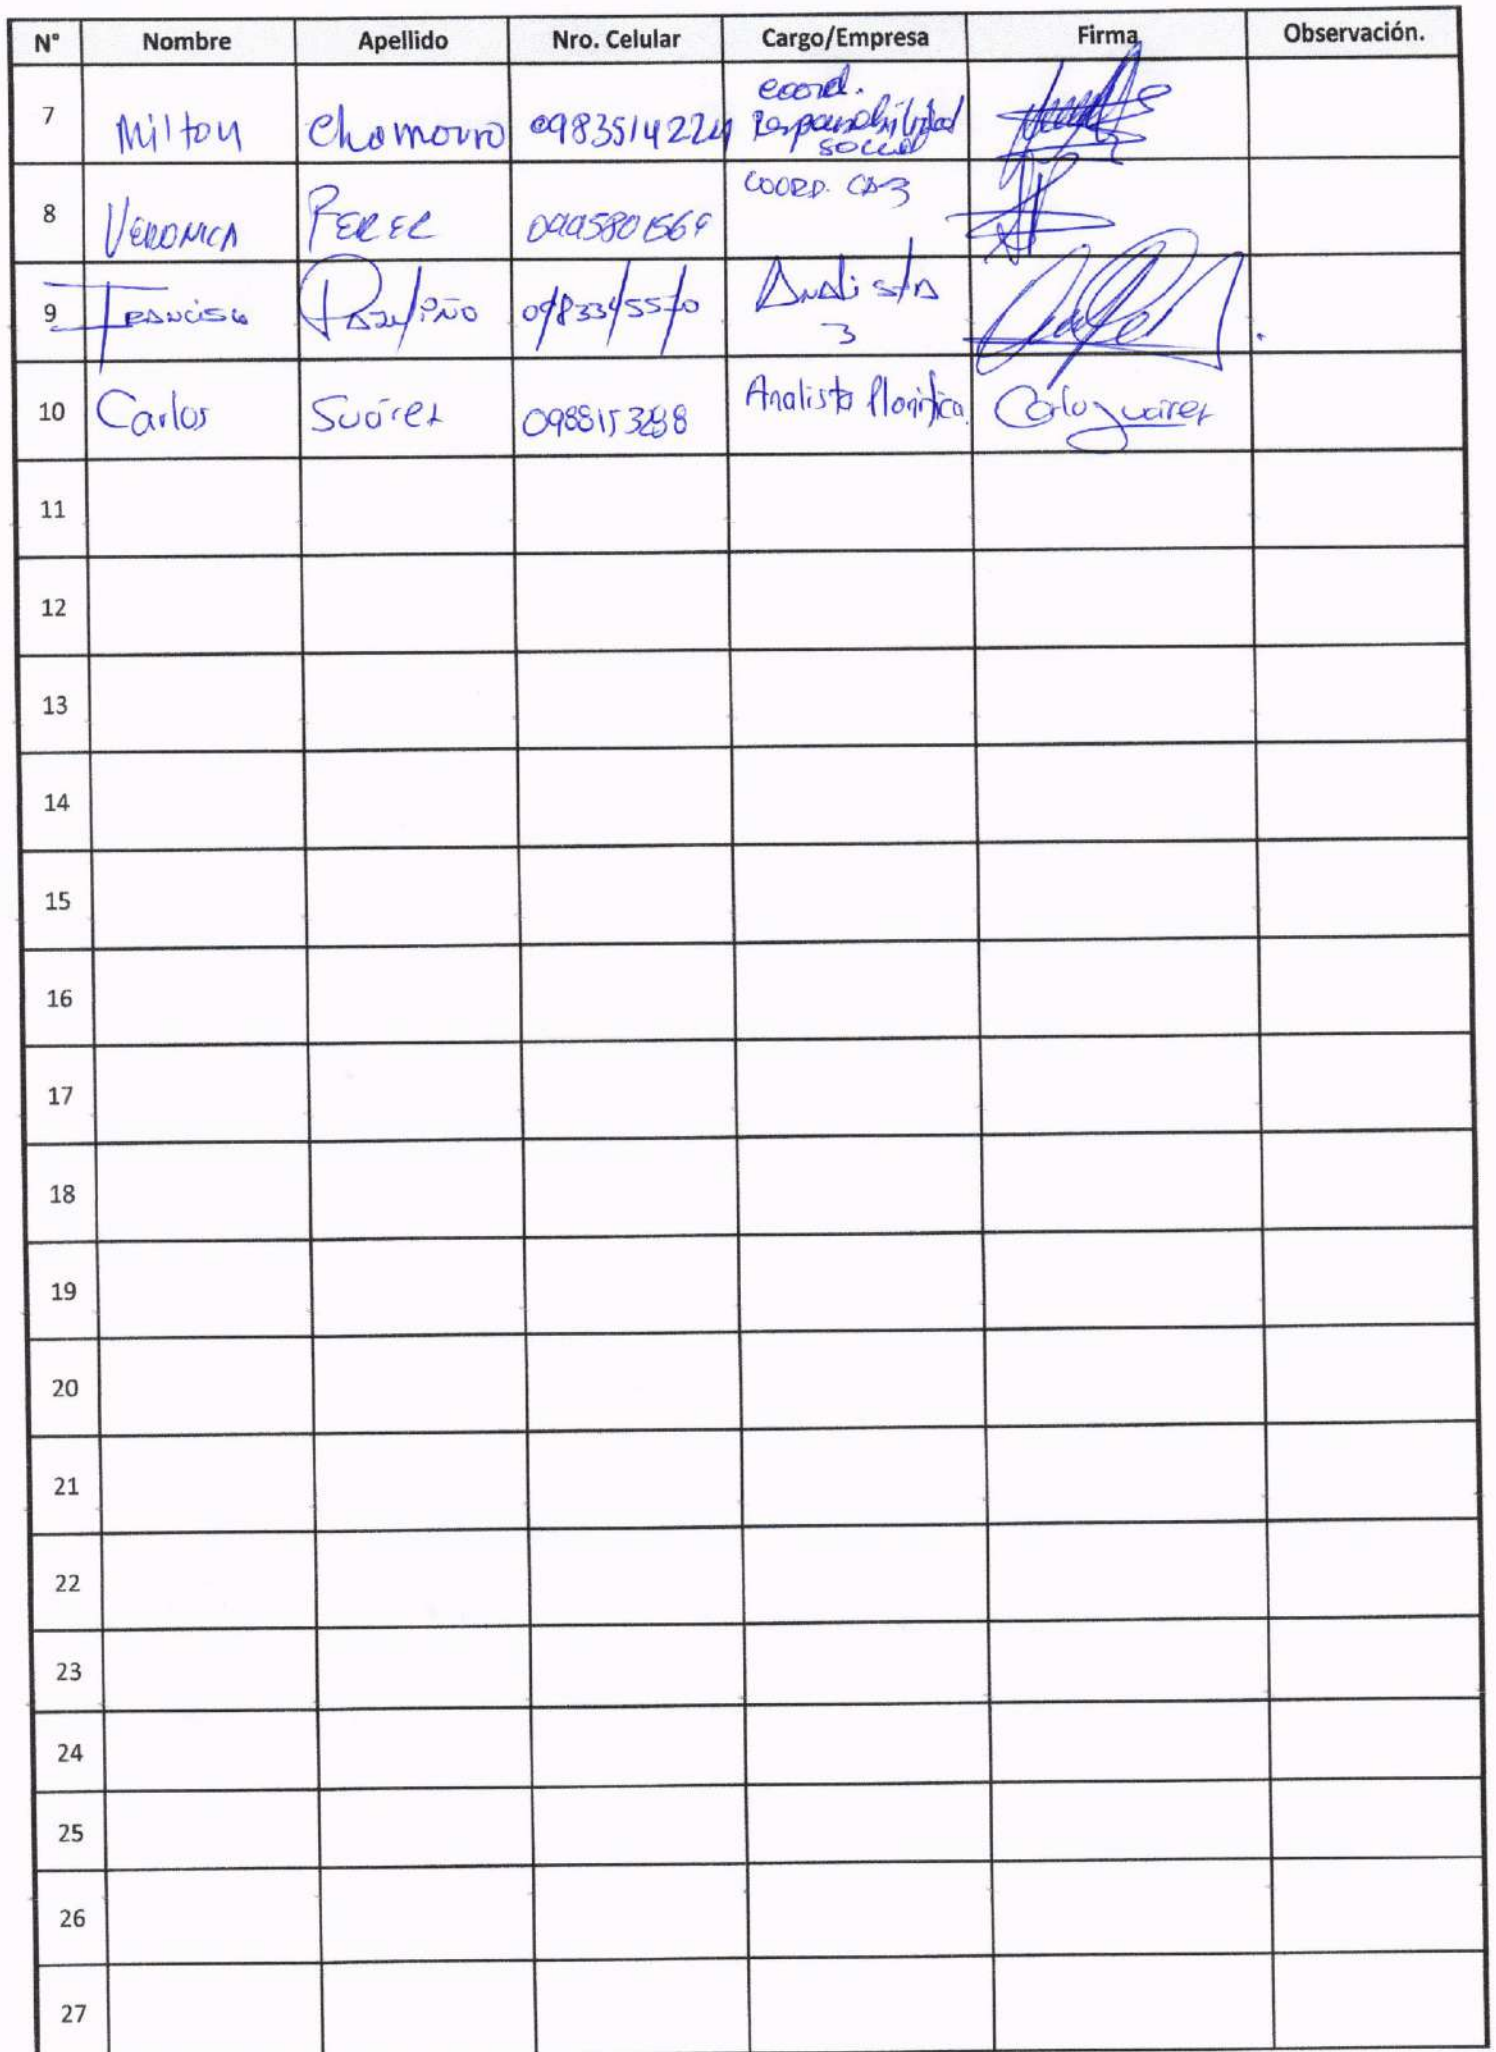 N° Nombre Apellido Nro. Celular Cargo/Empresa Firma Observación.
7 Milton Chamorro 0983514224 coord.
Responsabilidad
social
8 VERONICA PEREZ COORD.
9 FRANCISCO Analista
3
10 Carlos Suárez Analista Carlos Suarez
11
12
13
14
15
16
17
18
19
20
21
22
23
24
25
26
27